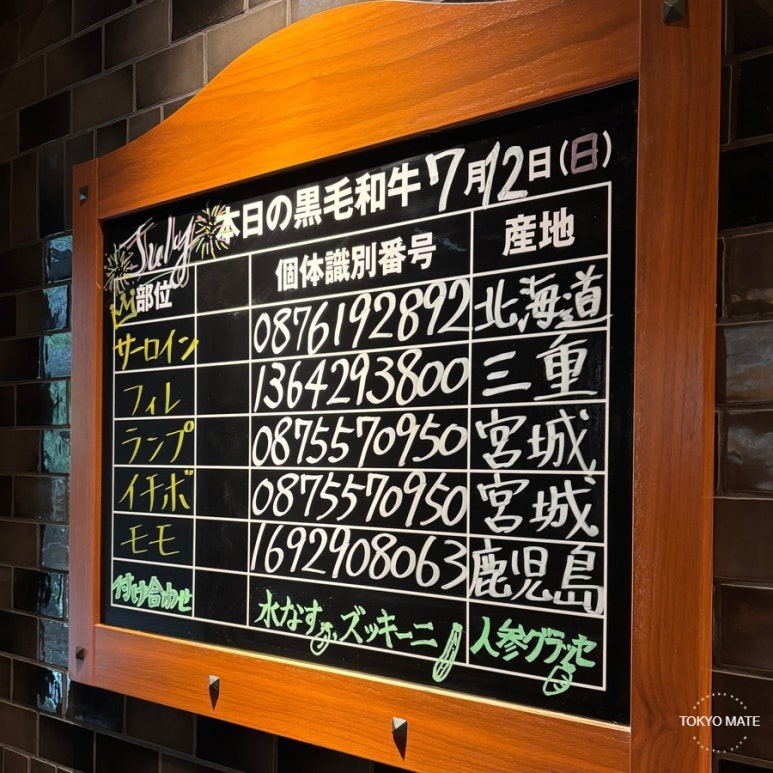 July 本日の黒毛和牛 7月12日(日)
部位 個体識別番号 産地
サーロイン 0876192892 北海道
フィレ 1364293800 三重
ランプ 0875570950 宮城
イチボ 0875570950 宮城
モモ 1692908063 鹿児島
付け合わせ 水なす、ズッキーニ 人参グラッセ
TOKYO MATE